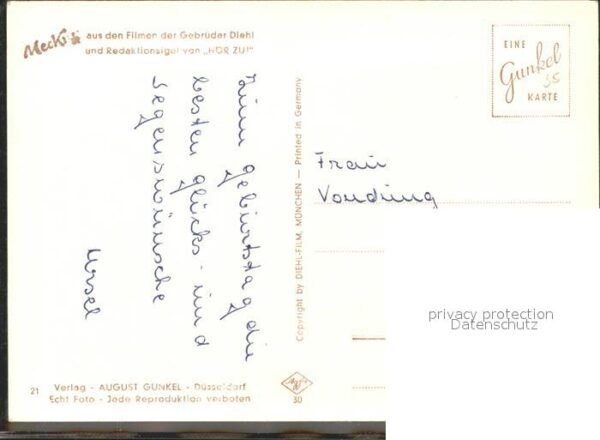 Mecki aus den Filmen der Gebrüder Diehl
und Redaktionsigel von „HÖR ZU!"
EINE
Gunkel
35
KARTE
Zum Geburtstag die
besten Glücks- und
Segenswünsche
Ursel
Copyright by DIEHL-FILM, MÜNCHEN — Printed in Germany
Frau
Vonding
privacy protection
Datenschutz
21 Verlag - AUGUST GUNKEL - Düsseldorf
Echt Foto - Jede Reproduktion verboten
30